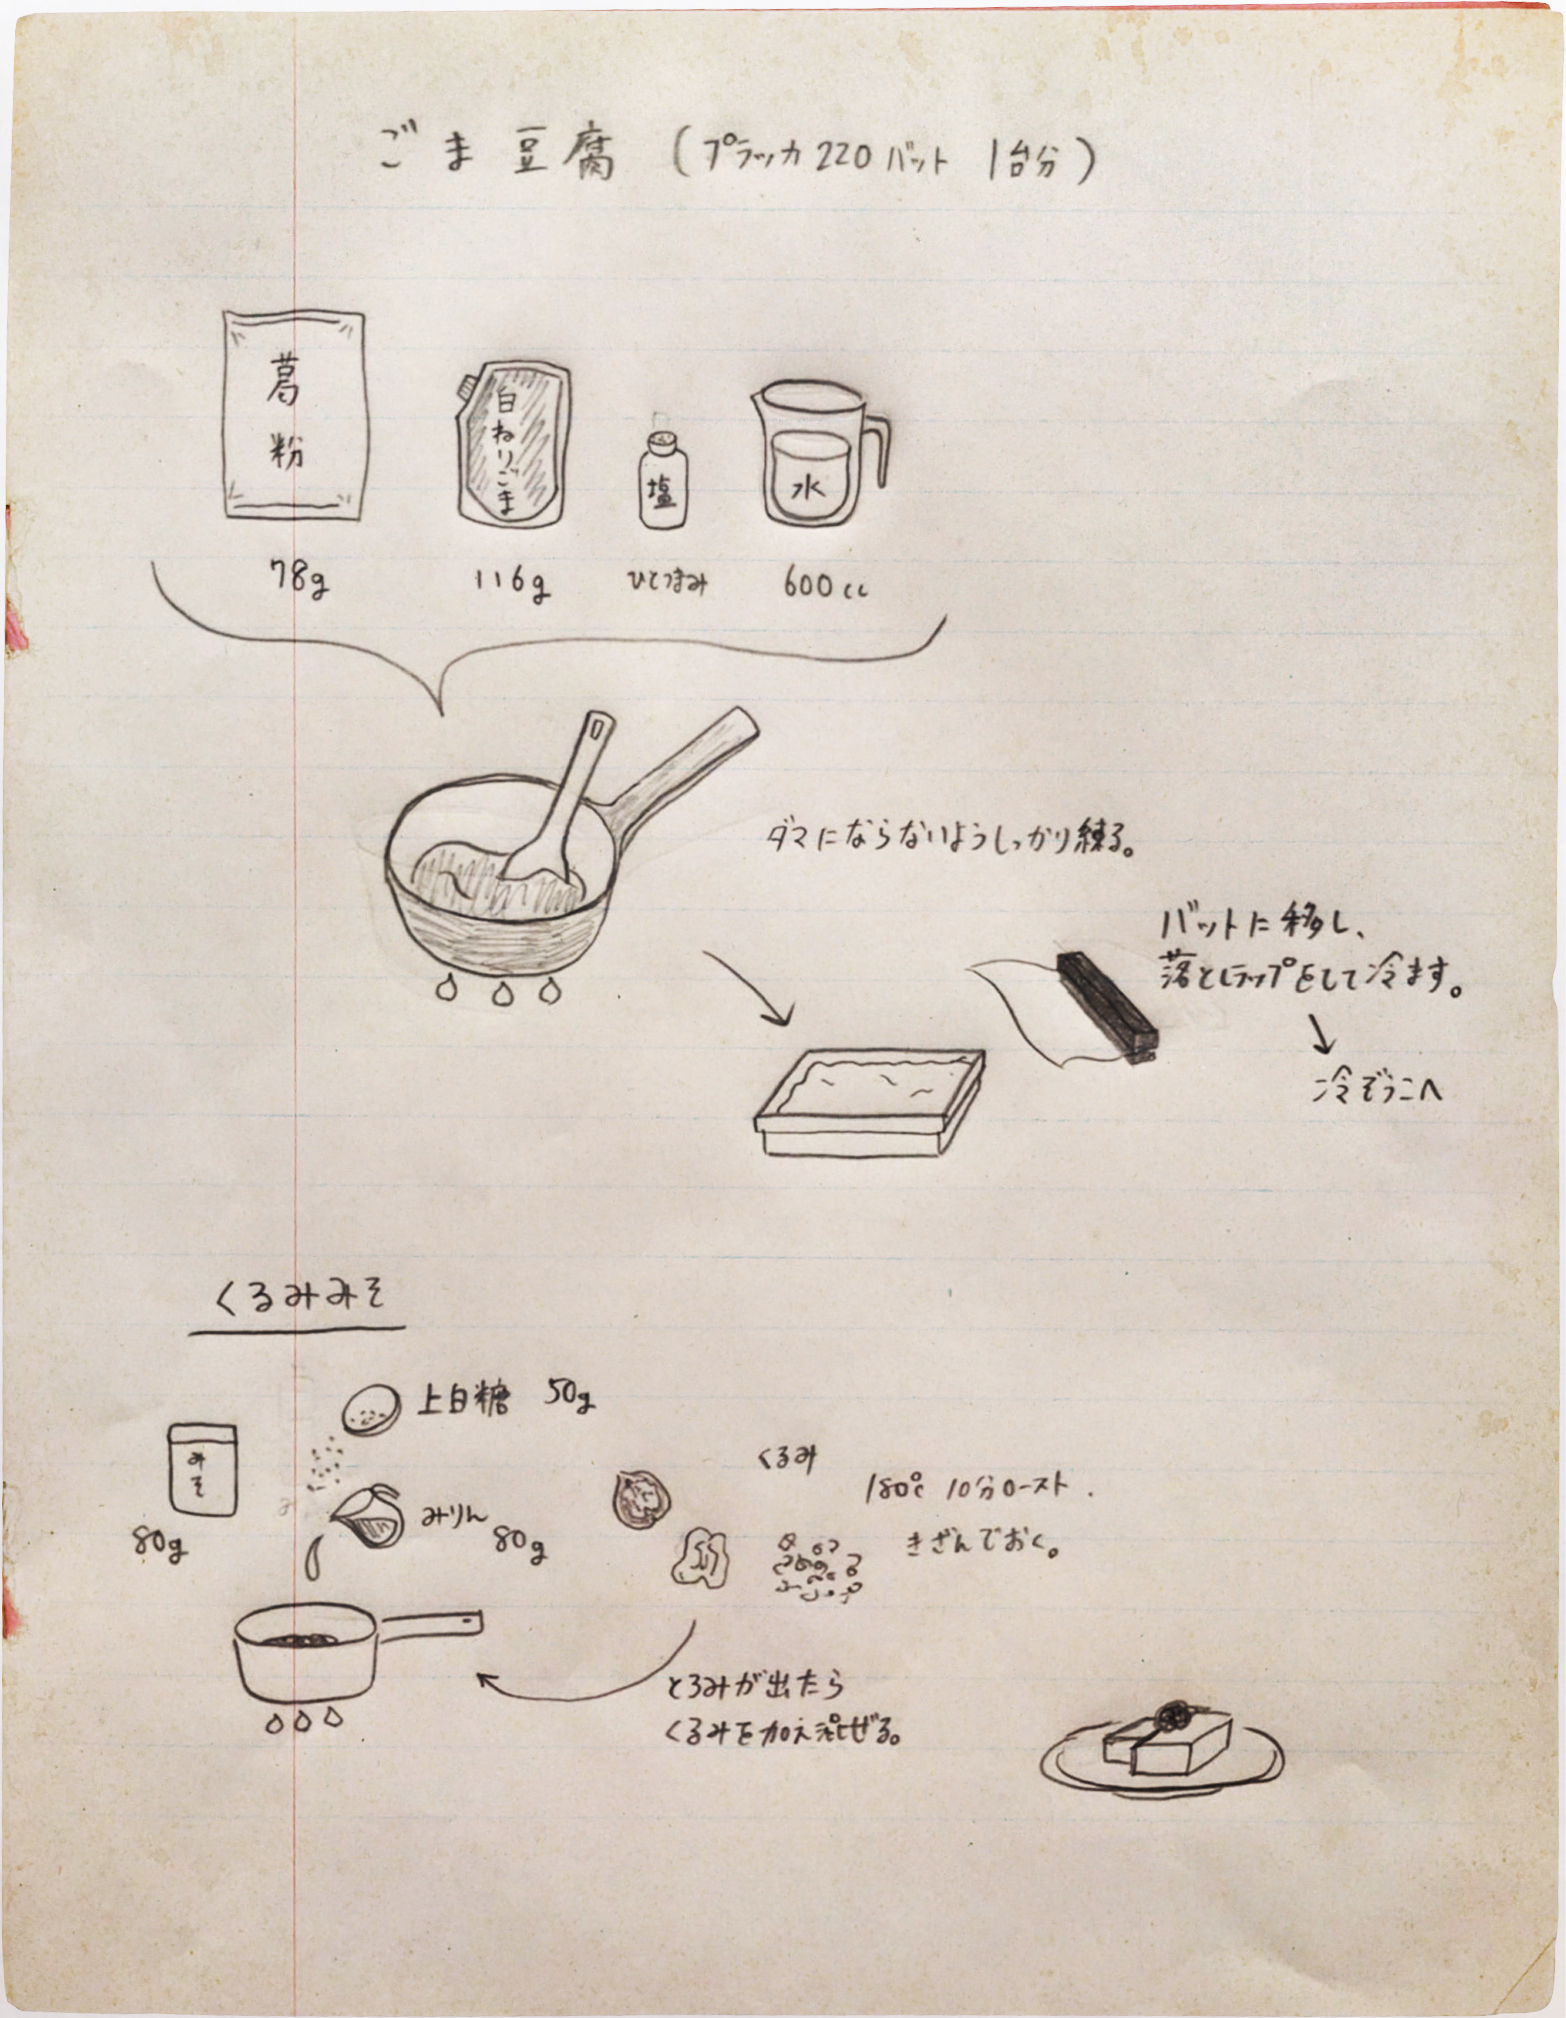 ごま豆腐 (プラッカ220バット 1台分)
葛粉
白ねりごま
塩
水
78g
116g
ひとつまみ
600cc
ダマにならないようしっかり練る。
バットに移し、
落としラップをして冷ます。
↓
冷ぞうこへ
くるみみそ
上白糖 50g
みそ
80g
みりん 80g
くるみ
180℃ 10分ロースト.
きざんでおく。
とろみが出たら
くるみを加え混ぜる。